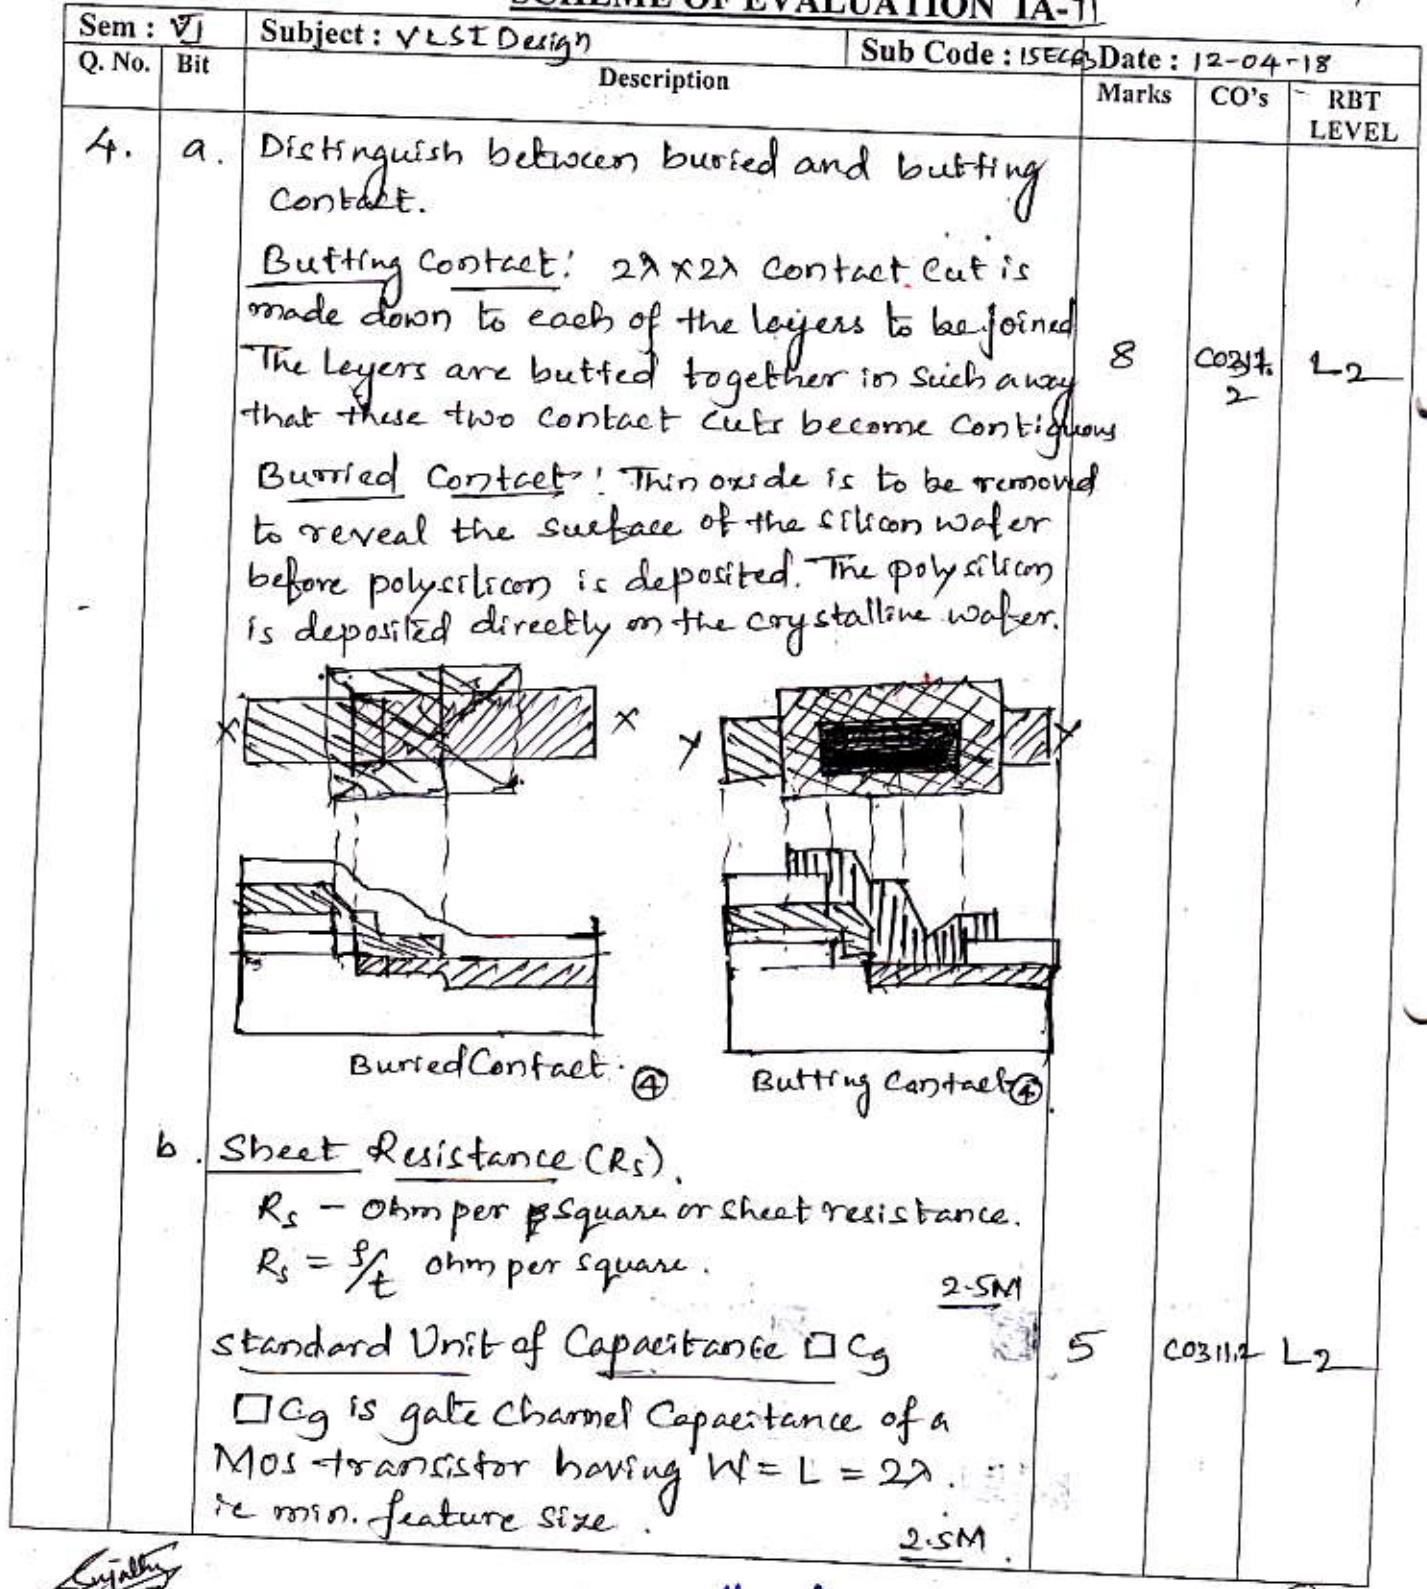 SCHEME OF EVALUATION IA-II
Sem : VI Subject : VLSI Design Sub Code : 15EC63 Date : 12-04-18
Q. No. Bit Description Marks CO's RBT LEVEL
4. a. Distinguish between buried and butting
Contact.
Butting Contact: 2λ×2λ Contact Cut is
made down to each of the layers to be joined
The Leyers are butted together in such a way
that these two contact cuts become contiguous
8 L2
Burried Contact: Thin oxide is to be removed
to reveal the surface of the silicon wafer
before polysilicon is deposited. The polysilicon
is deposited directly on the crystalline wafer.
X X Y Y
Buried Contact. 4 Butting Contact 4
b. Sheet Resistance (Rs).
Rs - Ohm per square or sheet resistance.
Rs = ρ/t ohm per square.
2.5M
Standard Unit of Capacitance □ Cg 5 CO311.2 L2
□ Cg is gate channel Capacitance of a
Mos transistor having W = L = 2λ.
ie min. feature size.
2.5M.